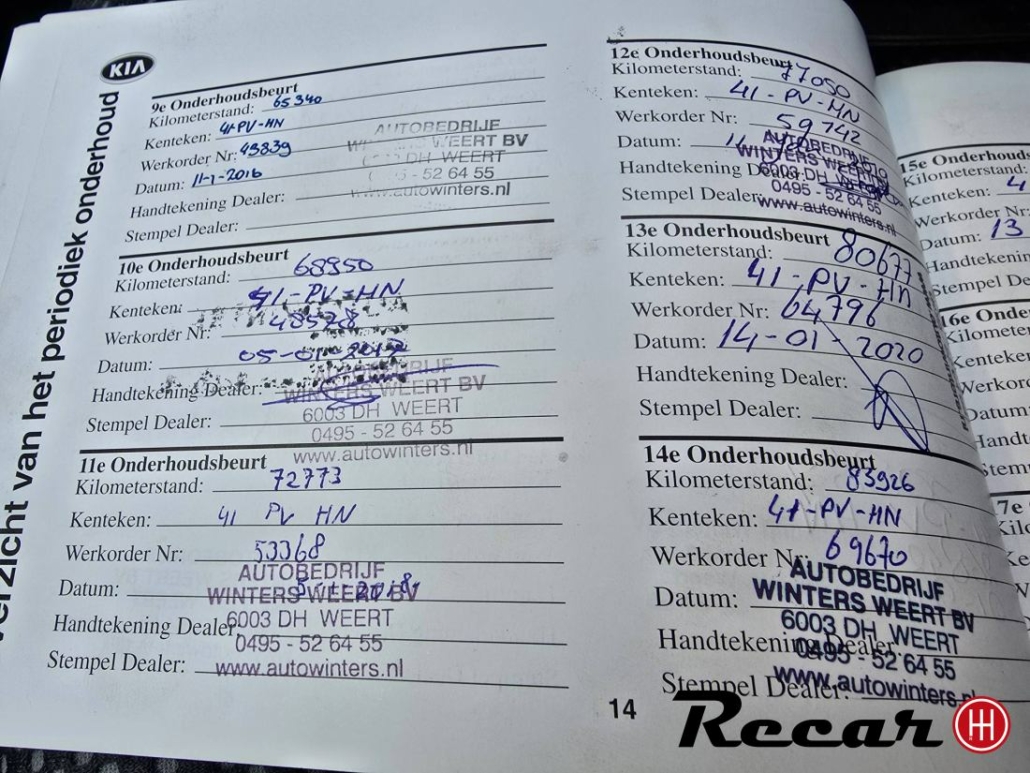 KIA
verzicht van het periodiek onderhoud
9e Onderhoudsbeurt
Kilometerstand: 65340
Kenteken: 41-PV-HN
Werkorder Nr: 43839
Datum: 11-1-2016
Handtekening Dealer:
Stempel Dealer:
AUTOBEDRIJF
WINTERS WEERT BV
DH WEERT
- 52 64 55
www.autowinters.nl
10e Onderhoudsbeurt
Kilometerstand: 68950
Kenteken: 41-PV-HN
Werkorder Nr: 48528
Datum: 05-01-2017
Handtekening Dealer:
Stempel Dealer:
WINTERS WEERT BV
6003 DH WEERT
0495 - 52 64 55
www.autowinters.nl
11e Onderhoudsbeurt
Kilometerstand: 72773
Kenteken: 41 PV HN
Werkorder Nr: 53368
Datum: 5-1-2018
Handtekening Dealer
Stempel Dealer:
AUTOBEDRIJF
WINTERS WEERT BV
6003 DH WEERT
0495 - 52 64 55
www.autowinters.nl
12e Onderhoudsbeurt
Kilometerstand: 77050
Kenteken: 41-PV-HN
Werkorder Nr: 59742
Datum:
Handtekening Dealer
Stempel Dealer
AUTOBEDRIJF
WINTERS WEERT
6003 DH
0495 - 52 64 55
www.autowinters.nl
13e Onderhoudsbeurt
Kilometerstand: 80677
Kenteken: 41-PV-HN
Werkorder Nr: 64796
Datum: 14-01-2020
Handtekening Dealer:
Stempel Dealer:
14e Onderhoudsbeurt
Kilometerstand: 83926
Kenteken: 41-PV-HN
Werkorder Nr: 69670
Datum:
Handtekening Dealer:
Stempel Dealer:
AUTOBEDRIJF
WINTERS WEERT BV
6003 DH WEERT
0495 - 52 64 55
www.autowinters.nl
14
15e Onderhouds
Kilometerstand:
Kenteken: 4
Werkorder Nr:
Datum: 13
Handtekening
Stempel De
16e Onder
Kilometer
Kenteken
Werkord
Datum:
Handt
Stem
7e
Recar